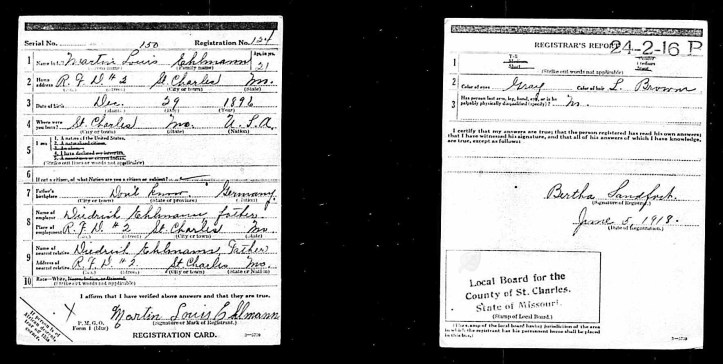 Serial No. 150 Registration No. 124
1 Name in full Martin Louis Ehlmann Age, in yrs. 21
(Family name)
2 Home address R.F.D. #2 St Charles Mo.
(City or town) (State)
3 Date of birth Dec. 29 1896
(Year)
4 Where were you born? St. Charles Mo. U.S.A.
(City or town) (State) (Nation)
5 I am
(Strike out lines or words not applicable)
6 If not a citizen, of what Nation are you a citizen or subject?
7 Father's birthplace Don't know Germany
(City or town) (State or province)
8 Name of employer Diedrich Ehlmann father
Place of employment R.F.D. #2 St. Charles Mo
(City or town) (State)
9 Name of nearest relative Diedrich Ehlmann, Father
Address of nearest relative R.F.D. #2 St. Charles Mo.
(City or town) (State or Nation)
10 Race—White
I affirm that I have verified above answers and that they are true.
X Martin Louis Ehlmann
P. M. G. O.
Form 1
(Signature or Mark of Registrant.)
REGISTRATION CARD.
REGISTRAR'S REPORT 24-2-16 P
1
(Strike out words not applicable)
2 Color of eyes Gray Color of hair L. Brown
3 Has person lost arm, leg, hand, eye, or is he palpably physically disqualified (specify)? No.
I certify that my answers are true; that the person registered has read his own answers; that I have witnessed his signature, and that all of his answers of which I have knowledge, are true, except as follows:
Bertha Sandfort.
(Signature of Registrar.)
June 5, 1918.
(Date of Registration.)
Local Board for the
County of St. Charles,
State of Missouri.
(Stamp of Local Board.)
(The stamp of the local board having jurisdiction of the area in which the registrant has his permanent home shall be placed in this box.)